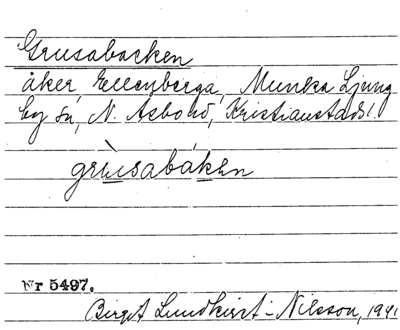 Grusabacken
åker, Ellenberga, Munka Ljung
by sn, N. Åsbo hd, Kristianstads l.
grùsabákен
Nr 5497.
Birgit Lundkvist-Nilsson, 1941